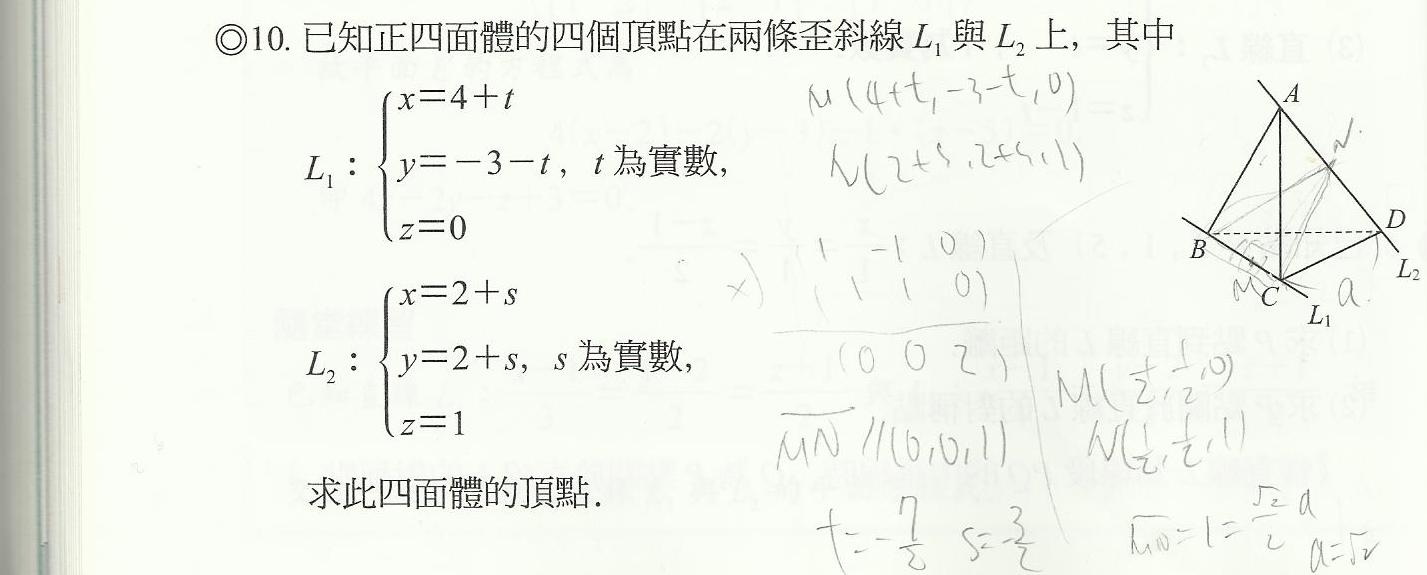 ◎10. 已知正四面體的四個頂點在兩條歪斜線 L₁ 與 L₂ 上，其中
L₁：
x＝4＋t
y＝－3－t，t 為實數，
z＝0
L₂：
x＝2＋s
y＝2＋s，s 為實數，
z＝1
求此四面體的頂點．
M(4+t, -3-t, 0)
N(2+s, 2+s, 1)
1 -1 0)
×) 1 1 0)
(0 0 2)
MN //(0,0,1)
t=-7/2 s=-3/2
M(1/2, 1/2, 0)
N(1/2, 1/2, 1)
MN=1=√2/2 a
a=√2
A
N
B
D
M
C
a
L₁
L₂